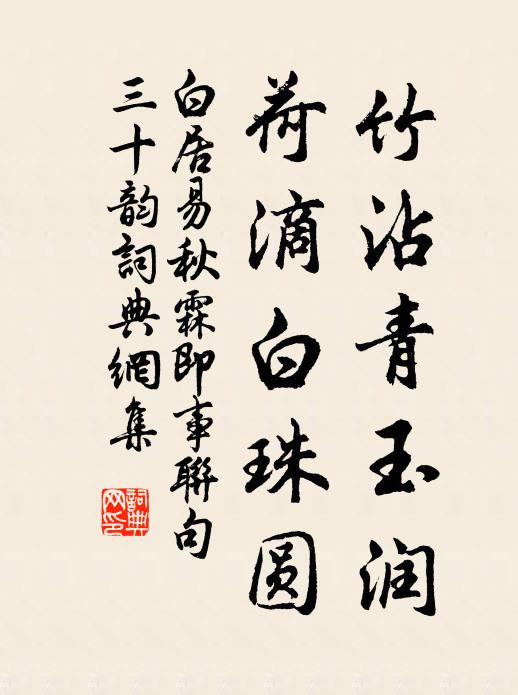 竹沾青玉润
荷滴白珠圆
白居易秋霖即事聯句
三十韵詞典網集
詞典网印